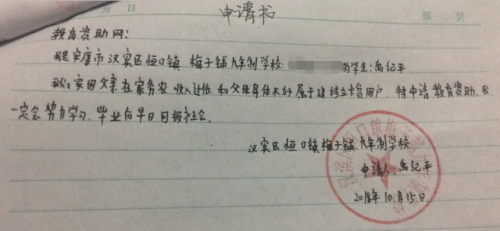 申请书
教育资助网:
我是安康市汉滨区恒口镇梅子铺九年制学校: 的学生:禹纪平
家父母在家务农,收入过低,和父母身体不好属于建档立贫用户 特申请教育资助,我
一定会努力学习,毕业向早日回报社会。
汉滨区恒口镇梅子铺九年制学校
申请人:禹纪平
2018年10月15日